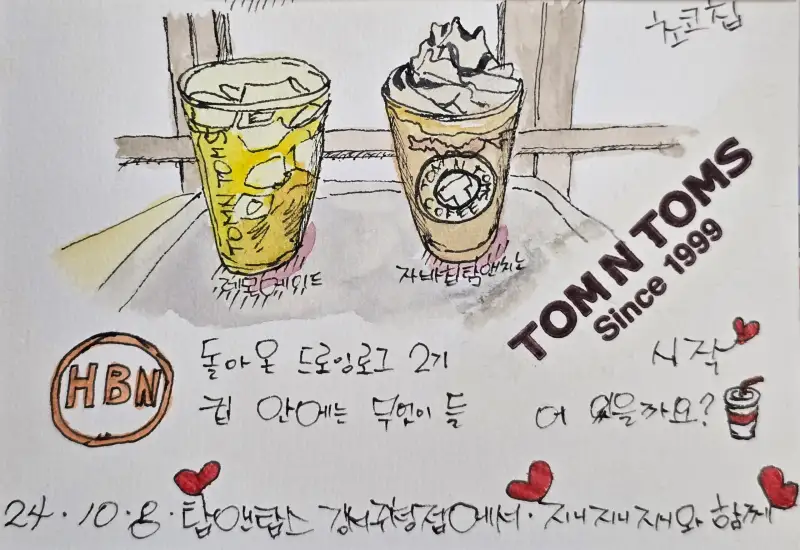 초코칩
TOMN TOMS
TOM N TOMS COFFEE
레모네이드
자바칩탐앤치노
TOM N TOMS
Since 1999
HBN
돌아온 드로잉로그 2기 시작
컵 안에는 무엇이 들어 있을까요?
24.10.8.탐앤탐스 강서구청점에서.지내지내지와 함께